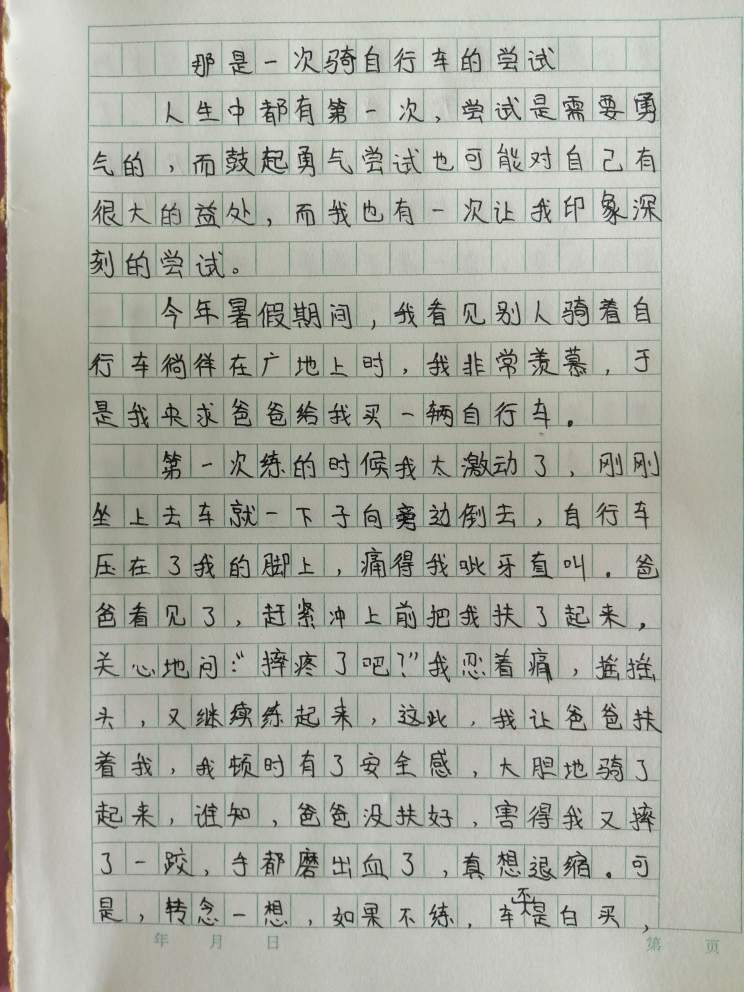 那是一次骑自行车的尝试
人生中都有第一次，尝试是需要勇
气的，而鼓起勇气尝试也可能对自己有
很大的益处，而我也有一次让我印象深
刻的尝试。
今年暑假期间，我看见别人骑着自
行车徜徉在广地上时，我非常羡慕，于
是我央求爸爸给我买一辆自行车。
第一次练的时候我太激动了，刚刚
坐上去车就一下子向旁边倒去，自行车
压在了我的脚上，痛得我呲牙直叫。爸
爸看见了，赶紧冲上前把我扶了起来，
关心地问：“摔疼了吧？”我忍着痛，摇摇
头，又继续练起来，这此，我让爸爸扶
着我，我顿时有了安全感，大胆地骑了
起来，谁知，爸爸没扶好，害得我又摔
了一跤，手都磨出血了，真想退缩。可
是，转念一想，如果不练，车不是白买，
年 月 日 第 页